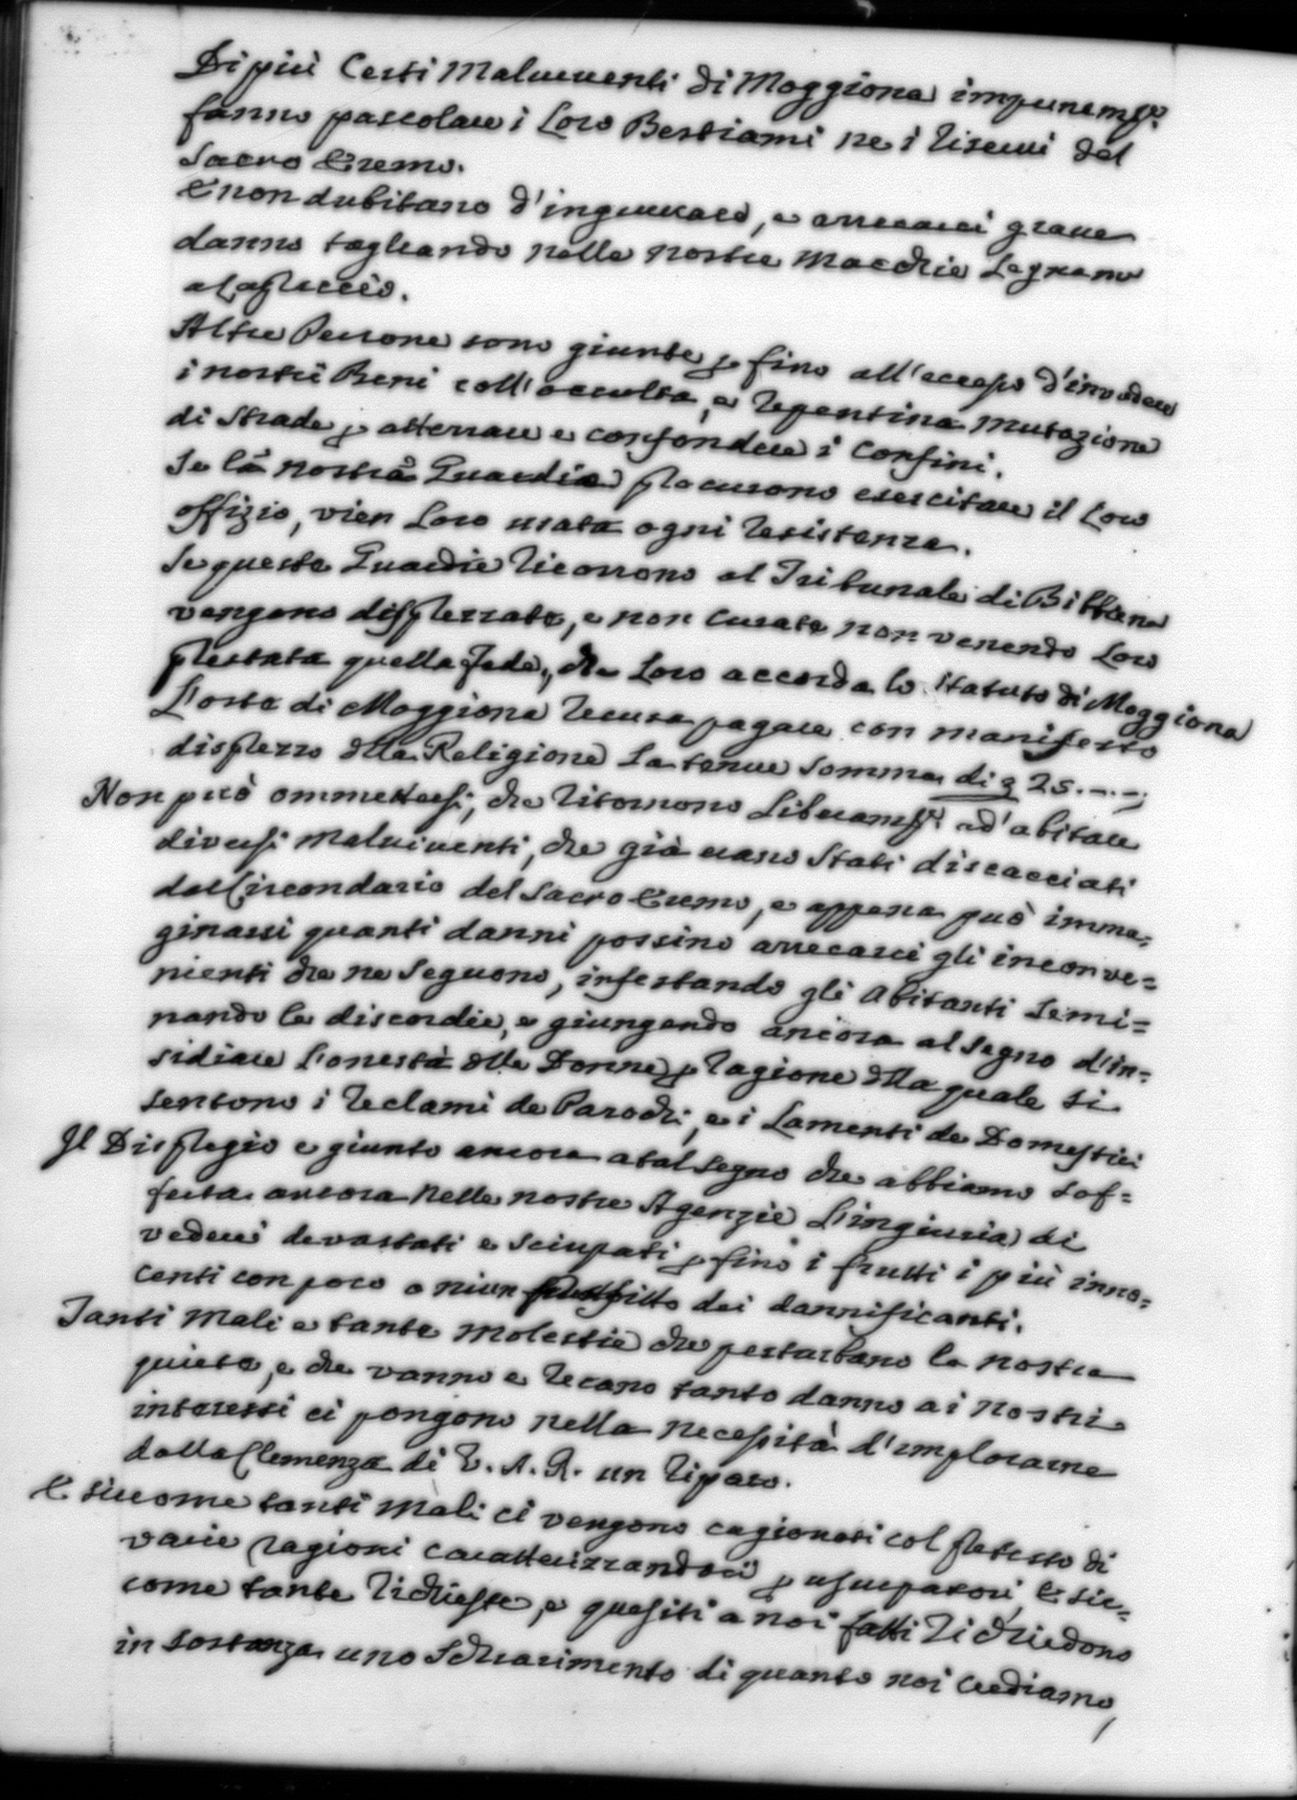 Di più Certi Malviventi di Moggiona impunem.te
fanno pascolare i Loro Bestiami ne i Riservi del
Sacro Eremo.
E non dubitano d'ingiuriarci, e arrecarci grave
danno tagliando nelle nostre Macchie Legname
a Capriccio.
Altre Persone sono giunte p fino all'eccesso d'invadere
i nostri Beni coll'occulta, e repentina mutazione
di Strade p atterrare e confondere i Confini.
Se le nostre Guardie procurono esercitare il Loro
offizio, vien Loro usata ogni resistenza.
Se queste Guardie ricorrono al Tribunale di Bibbiena
vengono disprezzate, e non curate non venendo Loro
prestata quella fede, che Loro accorda lo Statuto di Moggiona
L'oste di Moggiona recusa pagare con manifesto
disprezzo della Religione la tenue somma di 25.--;
Non può ommettersi, che ritornono Liberam.te ad'abitare
diversi malviventi, che già erano Stati discacciati
dal Circondario del Sacro Eremo, e appena può imma=
ginarsi quanti danni possino arrecarci gli inconve=
nienti che ne seguono, infestando gli abitanti semi=
nando le discordie, e giungendo ancora al segno d'in=
sidiare l'onestà delle Donne p ragione della quale si
sentono i reclami de Parochi, e i Lamenti de Domestici
Il Dispregio e giunto ancora a tal segno che abbiamo sof=
ferta ancora nelle nostre Agenzie L'ingiuria di
vederci devastati e sciupati p fino i frutti i più inno=
centi con poco o niun profitto dei dannificanti.
Tanti Mali e tante molestie che perturbano la nostra
quiete, e che vanno e recano tanto danno ai nostri
interessi ci pongono nella necessità d'implorarne
dalla Clemenza di V. A. R. un riparo.
E siccome tanti Mali ci vengono cagionati col pretesto di
varie ragioni caratterizzandoci p usurpatori E sic=
come tante richieste, e quesiti a noi fatti richiedono
in sostanza uno schiarimento di quanto noi crediamo,